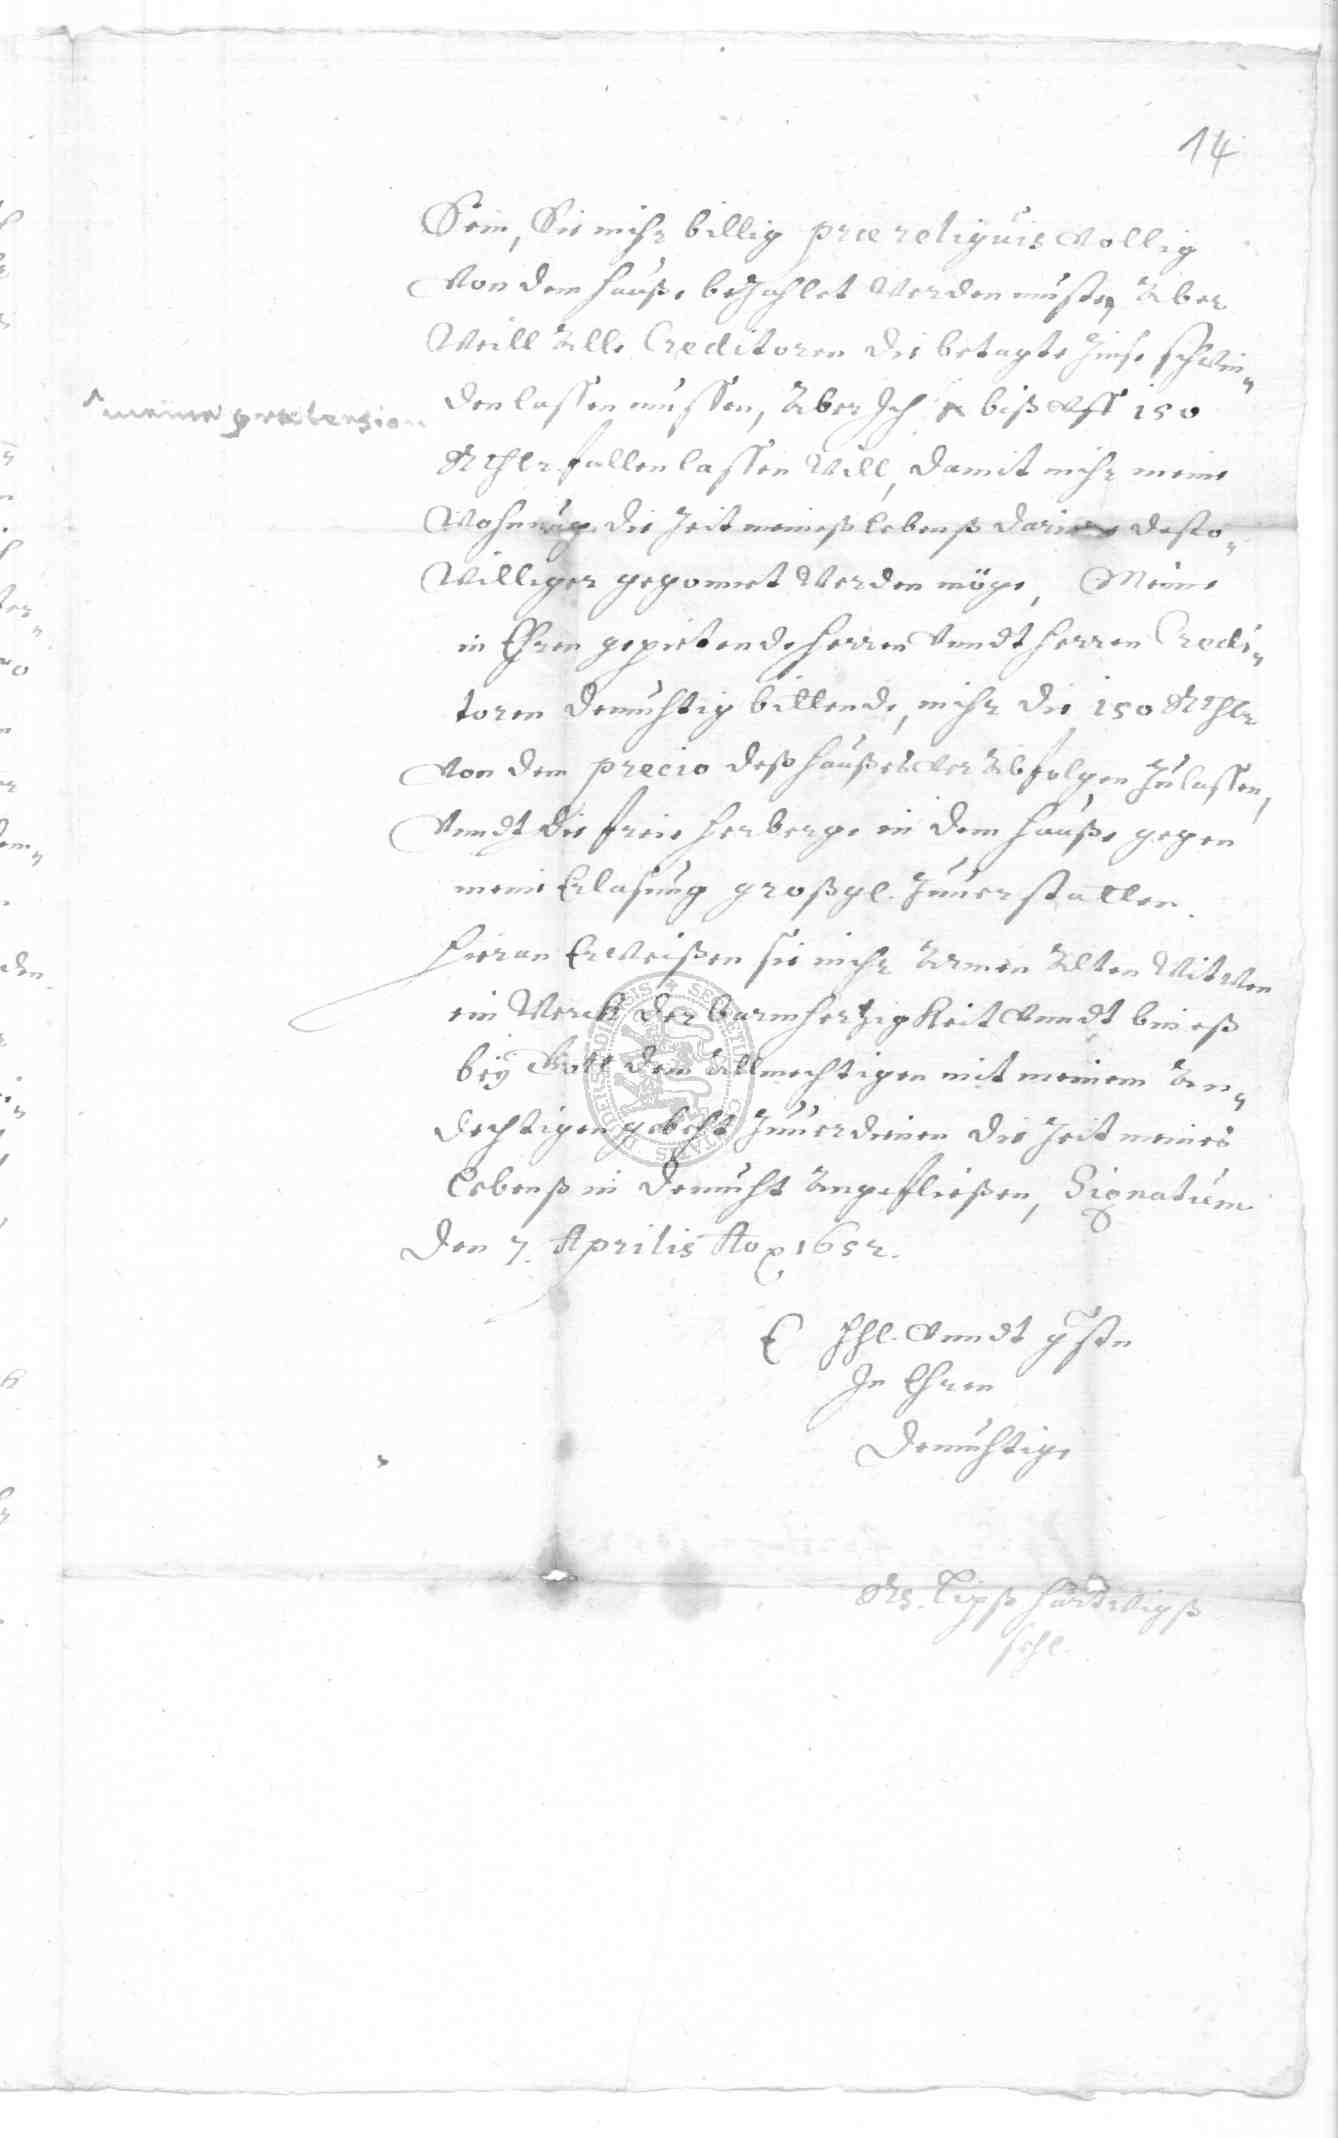 14
Sein, die mihr billig præ reliquis vollig
von dem Hauße bezahlet werden muste, Aber
Weill Alle Creditoren die betagte Zinse schwin„
den lassen mussen, Aber Ich biß vff 150
^ meine prætension
Rthlr fallen lassen will, damit mihr meine
Wohnung die Zeit meineß lebenß darinne desto„
Williger gegonnet werden möge, Meine
in Ehren gepietende Herren vnndt Herren Credi„
toren demuhtig bittende, mihr die 150 Rthlr
von dem precio deß Haußes ver Abfolgen Zu lassen,
vnndt die freie Herberge in dem Hauße gegen
meine Erlasung großgl. Zuuerstatten.
Hieran Erweißen sie mihr Armen Alten Witwen
ein Werck der barmhertzigkeit vnndt bin eß
bey Gott dem Allmechtigen mit meinem An„
dechtigen gebeht Zuuerdienen die Zeit meines
lebenß in demuht Angefließen, Signatum
den 7. Aprilis Ao 1652.
E vnndt gstn
In Ehren
Demuhtige
Hartwigß
sehl.
SECRETUM CIVITATIS